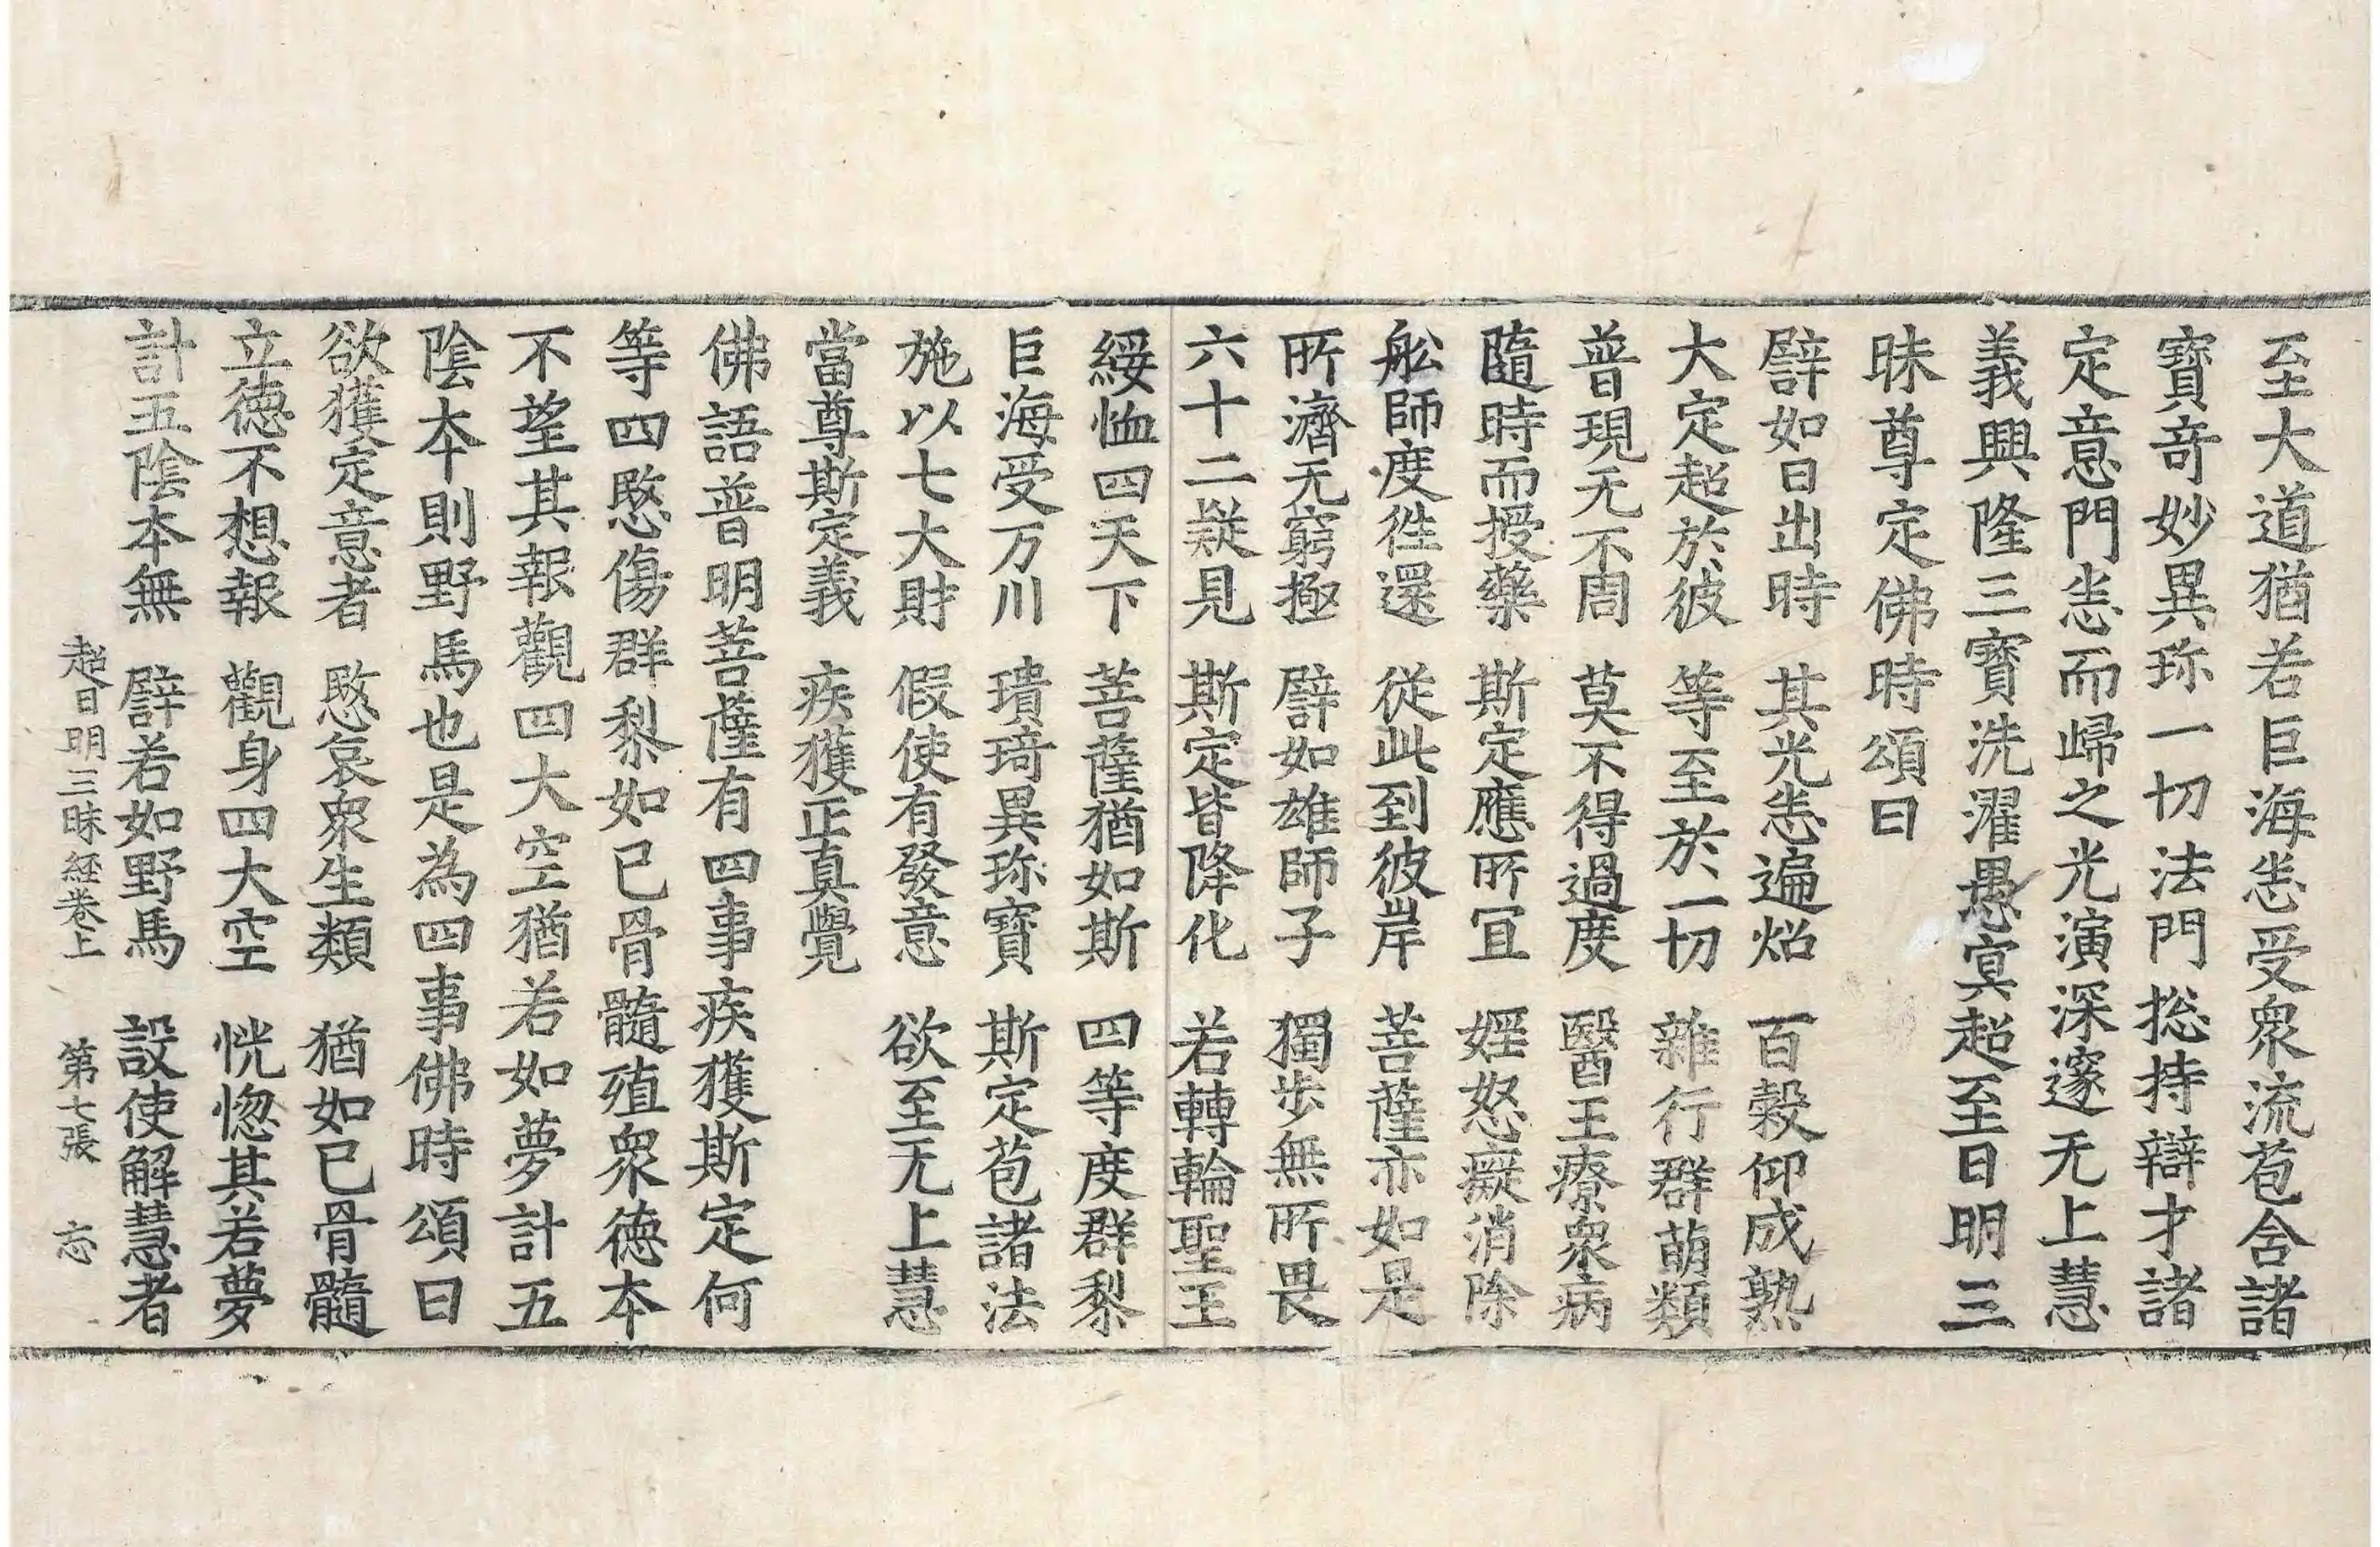 至大道猶若巨海悉受衆流苞含諸
寶奇妙異珎一切法門捴持辯才諸
定意門悉而歸之光演深邃无上慧
義興隆三寶洗濯愚冥超至日明三
昧尊定佛時頌曰
譬如日出時 其光悉遍炤 百穀仰成熟
大定超於彼 等至於一切 雜行群萌類
普現无不周 莫不得過度 醫王療衆病
隨時而授藥 斯定應所冝 婬怒癡消除
舩師度徃還 從此到彼岸 菩薩亦如是
所濟无窮極 譬如雄師子 獨步無所畏
六十二疑見 斯定皆降化 若轉輪聖王
綏恤四天下 菩薩猶如斯 四等度群黎
巨海受万川 璝琦異珎寶 斯定苞諸法
施以七大財 假使有發意 欲至无上慧
當尊斯定義 疾獲正真覺
佛語普明菩薩有四事疾獲斯定何
等四愍傷群黎如已骨髓殖衆德本
不望其報觀四大空猶若如夢計五
陰本則野馬也是為四事佛時頌曰
欲獲定意者 愍哀衆生類 猶如已骨髓
立德不想報 觀身四大空 恍惚其若夢
計五陰本無 譬若如野馬 設使解慧者
超日明三昧経卷上 第七張 忘